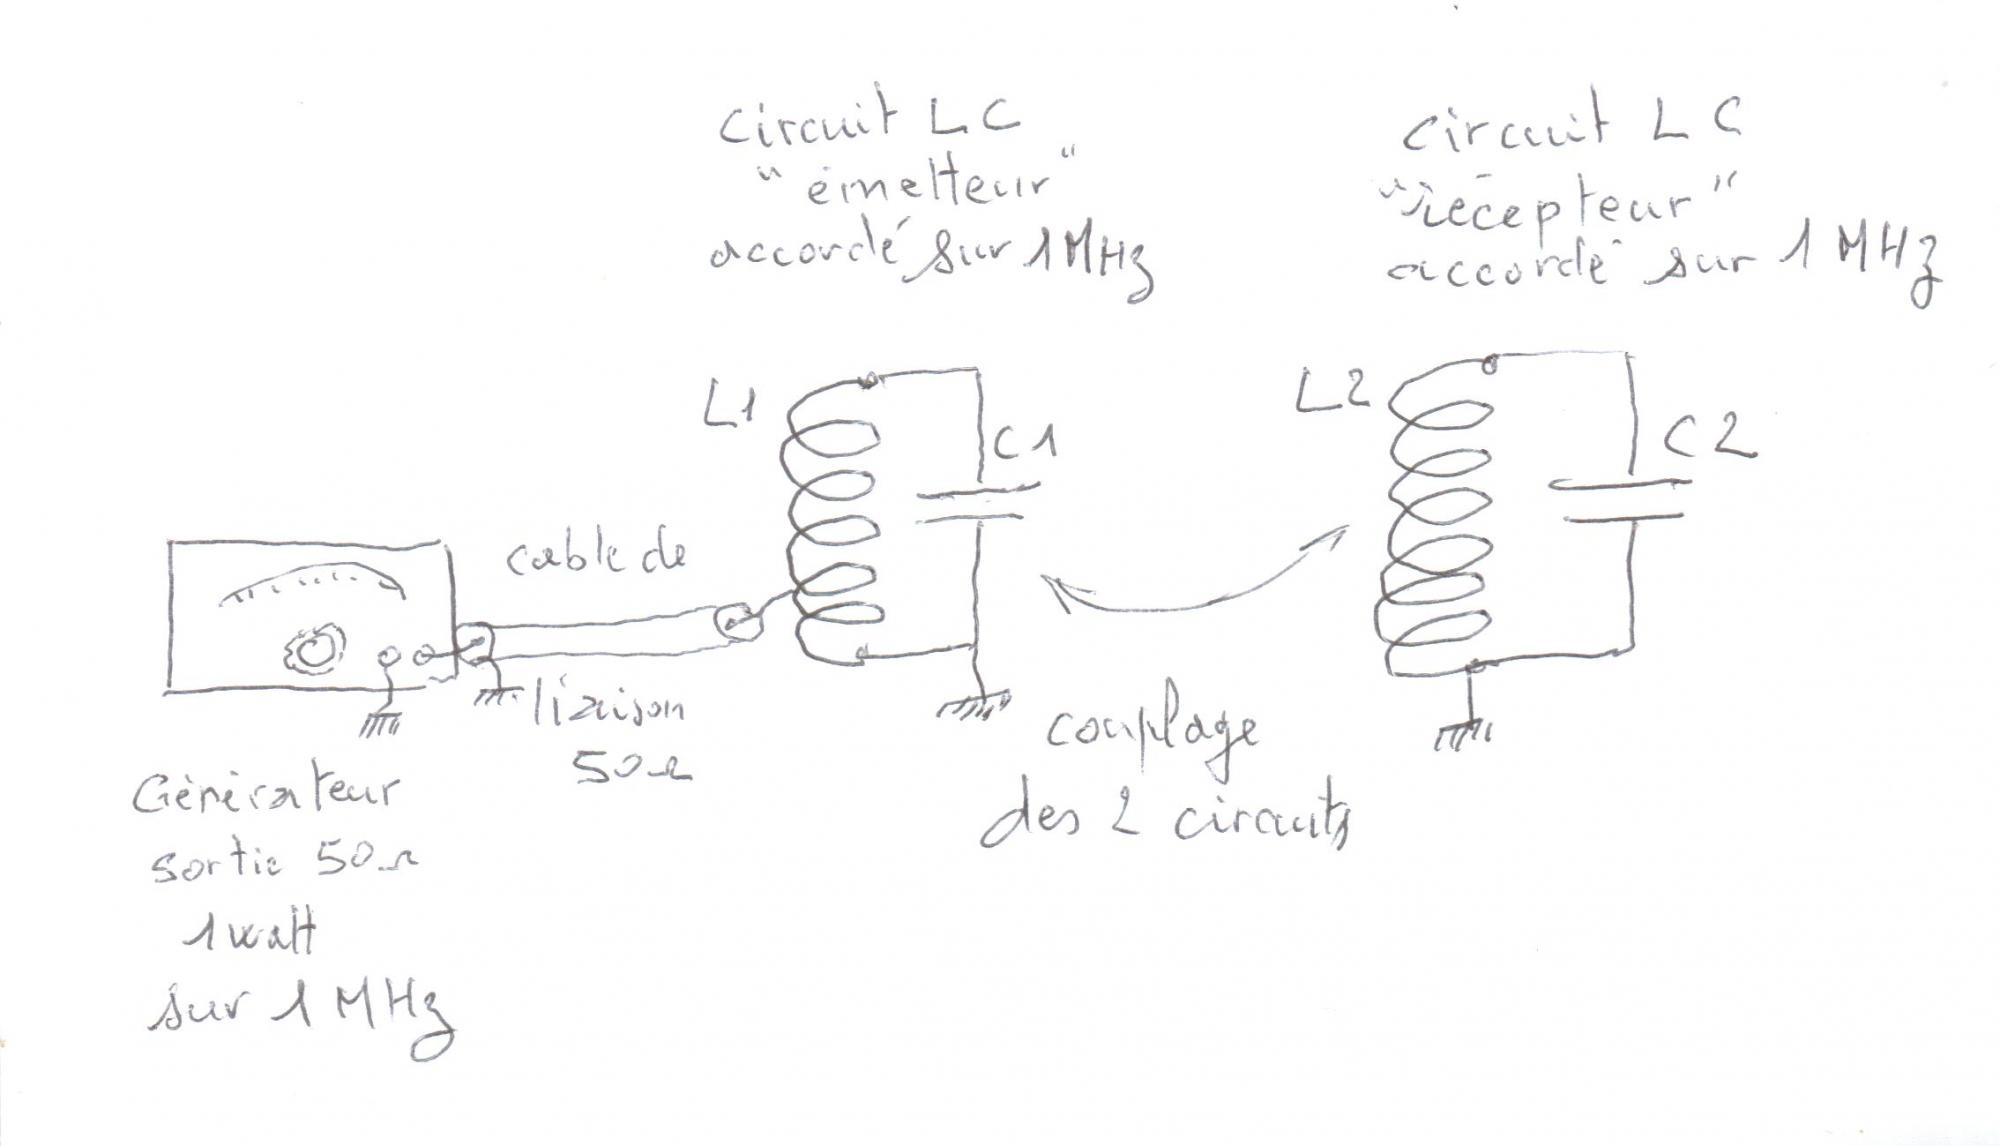 Circuit LC
"émetteur"
accordé sur 1MHz
circuit LC
"récepteur"
accordé sur 1 MHz
L1
C1
L2
C2
cable de
liaison
50Ω
couplage
des 2 circuits
Générateur
sortie 50Ω
1 watt
sur 1 MHz